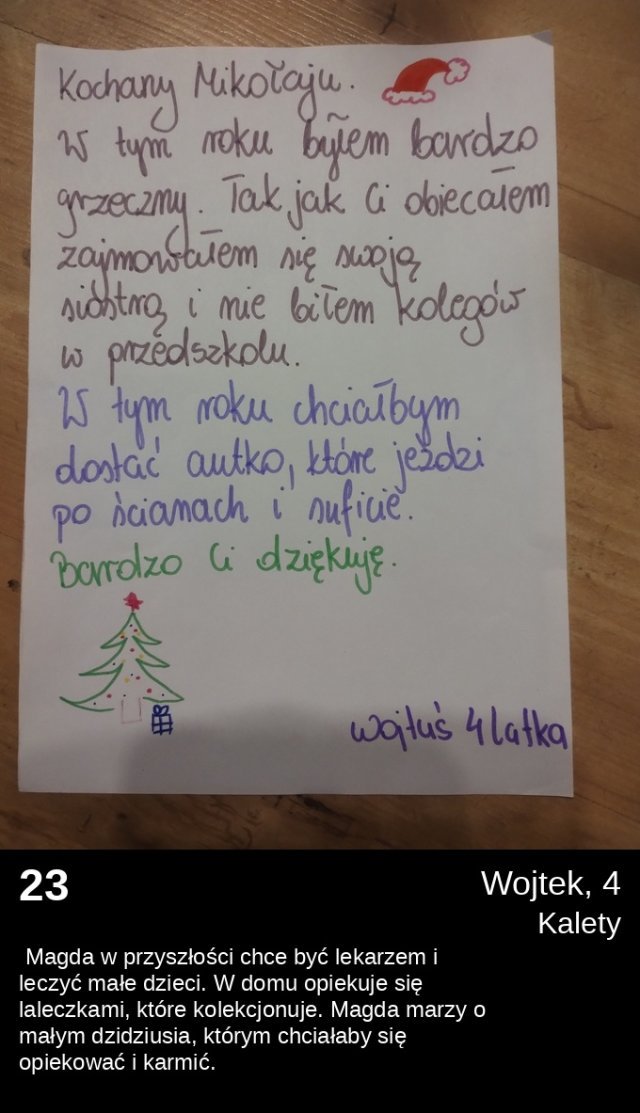 Kochany Mikołaju.
W tym roku byłem bardzo
grzeczny. Tak jak Ci obiecałem
zajmowałem się swoją
siostrą i nie biłem kolegów
w przedszkolu.
W tym roku chciałbym
dostać autko, które jeździ
po ścianach i suficie.
Bardzo Ci dziękuję.
Wojtuś 4 latka
23
Wojtek, 4
Kalety
Magda w przyszłości chce być lekarzem i
leczyć małe dzieci. W domu opiekuje się
laleczkami, które kolekcjonuje. Magda marzy o
małym dzidziusia, którym chciałaby się
opiekować i karmić.